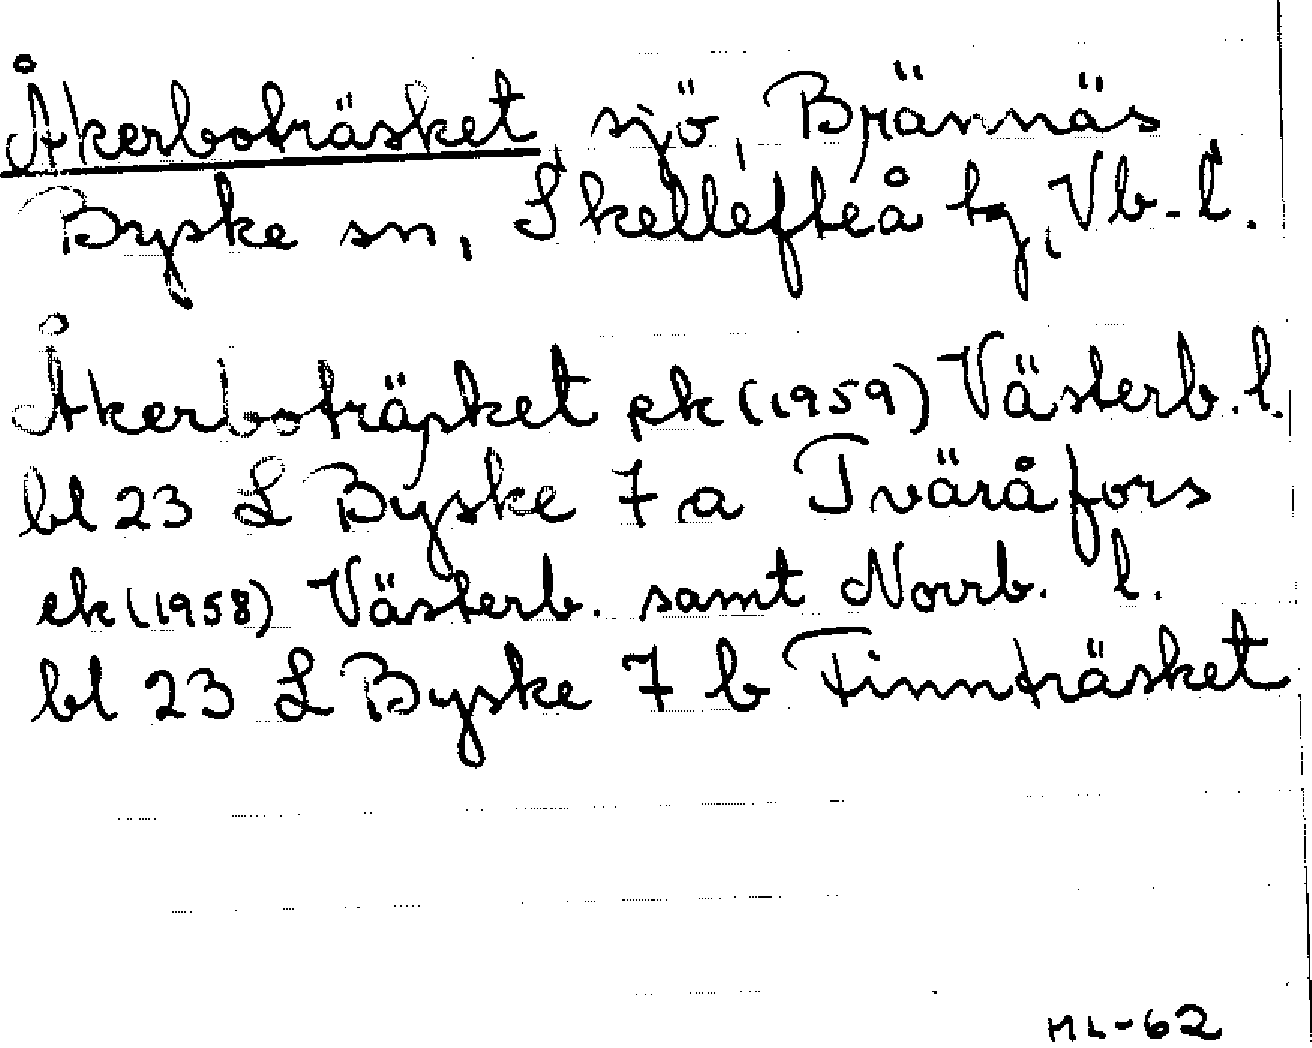 Åkerboträsket, sjö, Brännäs
Byske sn, Skellefteå tg, Vb-l.
Åkerboträsket ek (1959) Västerb. l.
bl 23 L Byske 7 a Tväråfors
ek (1958) Västerb. samt Norrb. l.
bl 23 L Byske 7 b Finnträsket
ML-62